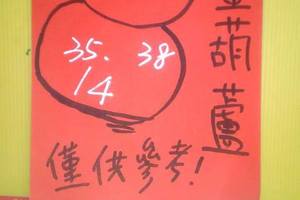 葫蘆
35. 38
14
僅供參考!